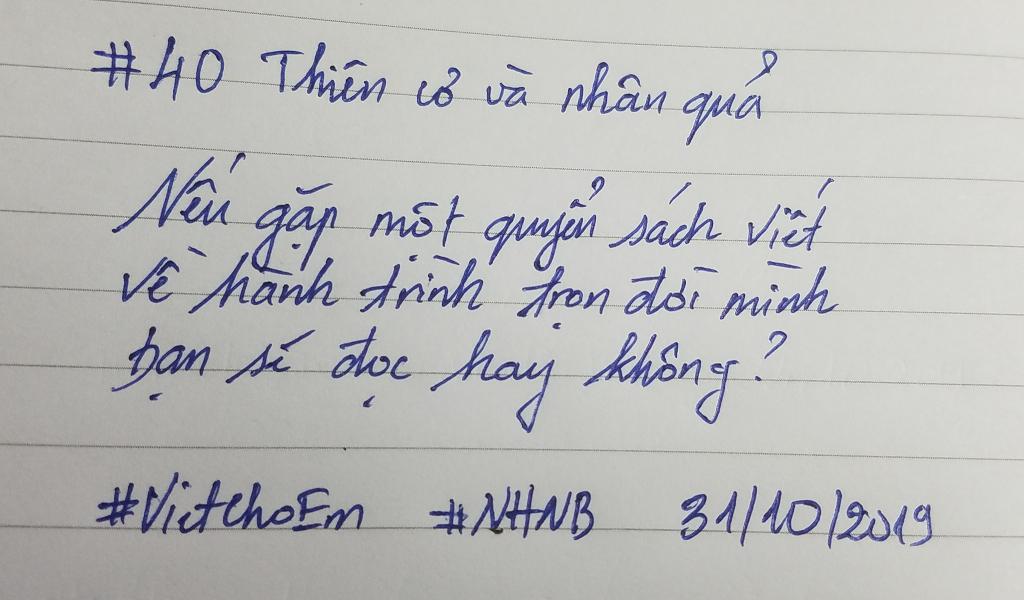 #40 Thiên cơ và nhân quả
Nếu gặp một quyển sách viết
về hành trình trọn đời mình
bạn sẽ đọc hay không?
#VietchoEm #NHNB 31/10/2019